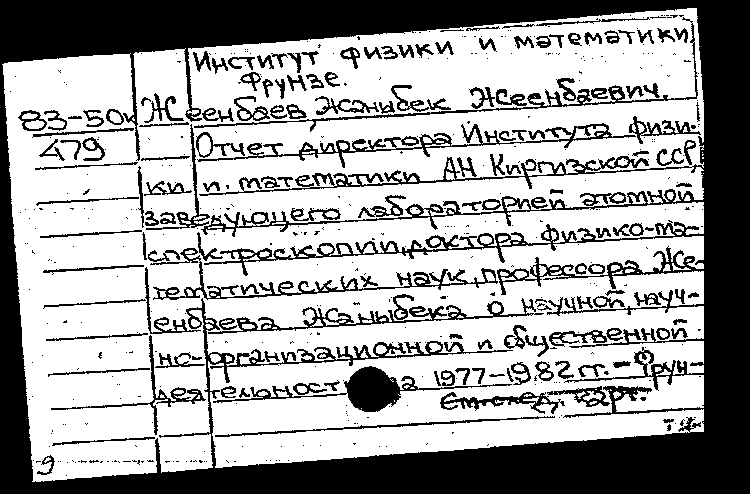 Институт физики и математики
Фрунзе.
83-50к Жеенбаев, Жаныбек Жеенбаевич.
479 Отчет директора Института физи-
ки и математики АН Киргизской ССР,
заведующего лабораторией атомной
спектроскопии, доктора физико-ма-
тематических наук, профессора Же-
енбаева Жаныбека о научной, науч-
но-организационной и общественной
деятельност за 1977-1982 гг. - Фрун-
9